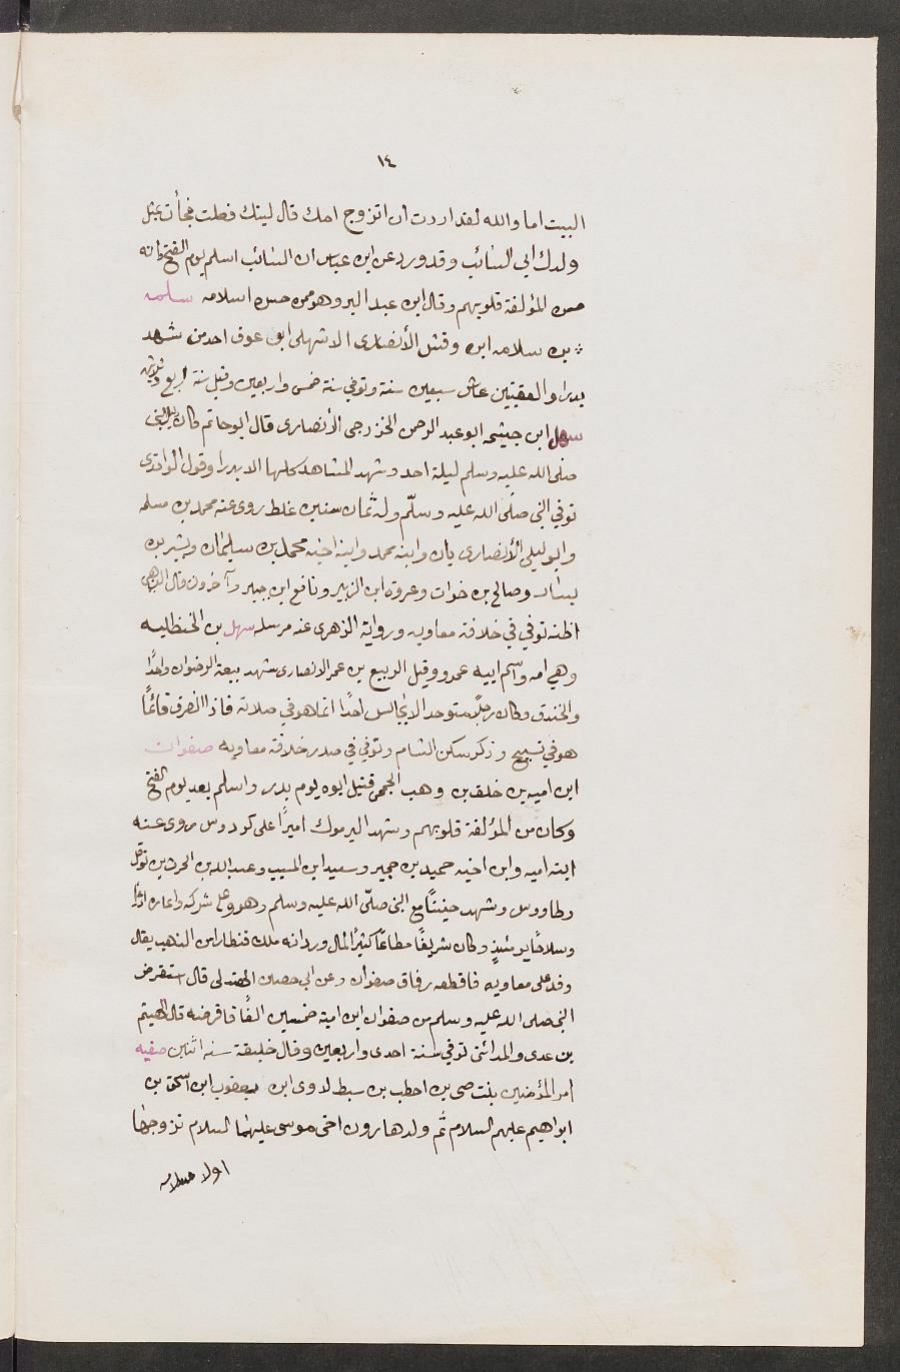 ١٤
البيت اما والله لقد اردت ان اتزوج امك قال ليتك فعلت فجأت بمثل
ولدك ابي السائب وقد ورد عن ابن عباس ان السائب اسلم يوم الفتح وانه
من المؤلفة قلوبهم وقال ابن عبد البر وهو ممن حسن اسلامه سلمه
بن سلامه ابن وقش الأنصارى الاشهلى ابو عوف احد من شهد
بدرا والعقبتين عاش سبعين سنة وتوفي سنة خمس واربعين وقيل سنة اربع وثلاثين
سهل ابن حيثمه ابو عبد الرحمن الخزرجى الأنصارى قال ابو حاتم كان دليل النبى
صلى الله عليه وسلم ليلة احد وشهد المشاهد كلها الا بدرا وقول الواقدى
توفي النبي صلى الله عليه وسلّم وله ثمان سنين غلط روى عنه محمد بن مسلمه
وابو ليلى الأنصارى وابنه محمد وابن اخيه محمد بن سليمان وبشير بن
يسار وصالح بن خوات وعروة ابن الزبير ونافع ابن جبير وآخرون قال الذهبى
اظنه توفي في خلافة معاويه ورواية الزهرى عنه مرسله سهل بن الحنظليه
وهي امه واسم ابيه عمرو وقيل الربيع بن عمر الانصارى شهد بيعة الرضوان واحدًا
والخندق وكان رجلًا متوحدا لا يجالس احدًا انما هو في صلاته فاذا انصرف فانمًا
هو في تسبيح وذكر سكن الشام وتوفي في صدر خلافة معاويه صفوان
ابن اميه بن خلف بن وهب الجمحى قتيل ابوه يوم بدر واسلم بعد يوم الفتح
وكان من المؤلفة قلوبهم وشهد اليرموك اميرًا على كردوس روى عنه
ابنه اميه وابن اخيه حميد بن حجير وسعيد ابن المسيب وعبد الله بن الحرث بن نوفل
وطاووس وشهد حنينًا مع النبى صلّى الله عليه وسلم وهو على شركه واعاره
وسلاحًا يومئذٍ وكان شريفًا مطاعًا كثير المال ورد انه ملك قنطار امن الذهب يقال
وفد على معاويه فاقطعه زقاق صفوان وعن ابي حصين الهذلى قال استقرض
النبى صلى الله عليه وسلم من صفوان ابن امية خمسين الفًا فاقرضه قال الهيثم
بن عدى والمدائنى توفي سنة احدى واربعين وقال خليفة سنه اثنين صفيه
ام المؤمنين بنت حى بن اخطب بن سبط لاوى ابن يعقوب ابن اسحق بن
ابراهيم عليهم السلام ثم ولد هارون اخى موسى عليهما السلام تزوجها
اولا سلام